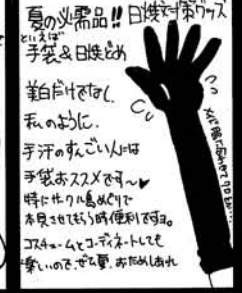 夏の必需品!! 日焼対策グッズ
といえば
手袋&日焼どめ
美白だけでなし、
私のように、
手汗のすんごい人には
手袋おススメです〜♥
特にサークル島めぐりで
本見させてもらう時便利ですヨ。
コスチュームとコーディネートしても
楽しいので、ぜひ夏、おためしあれ